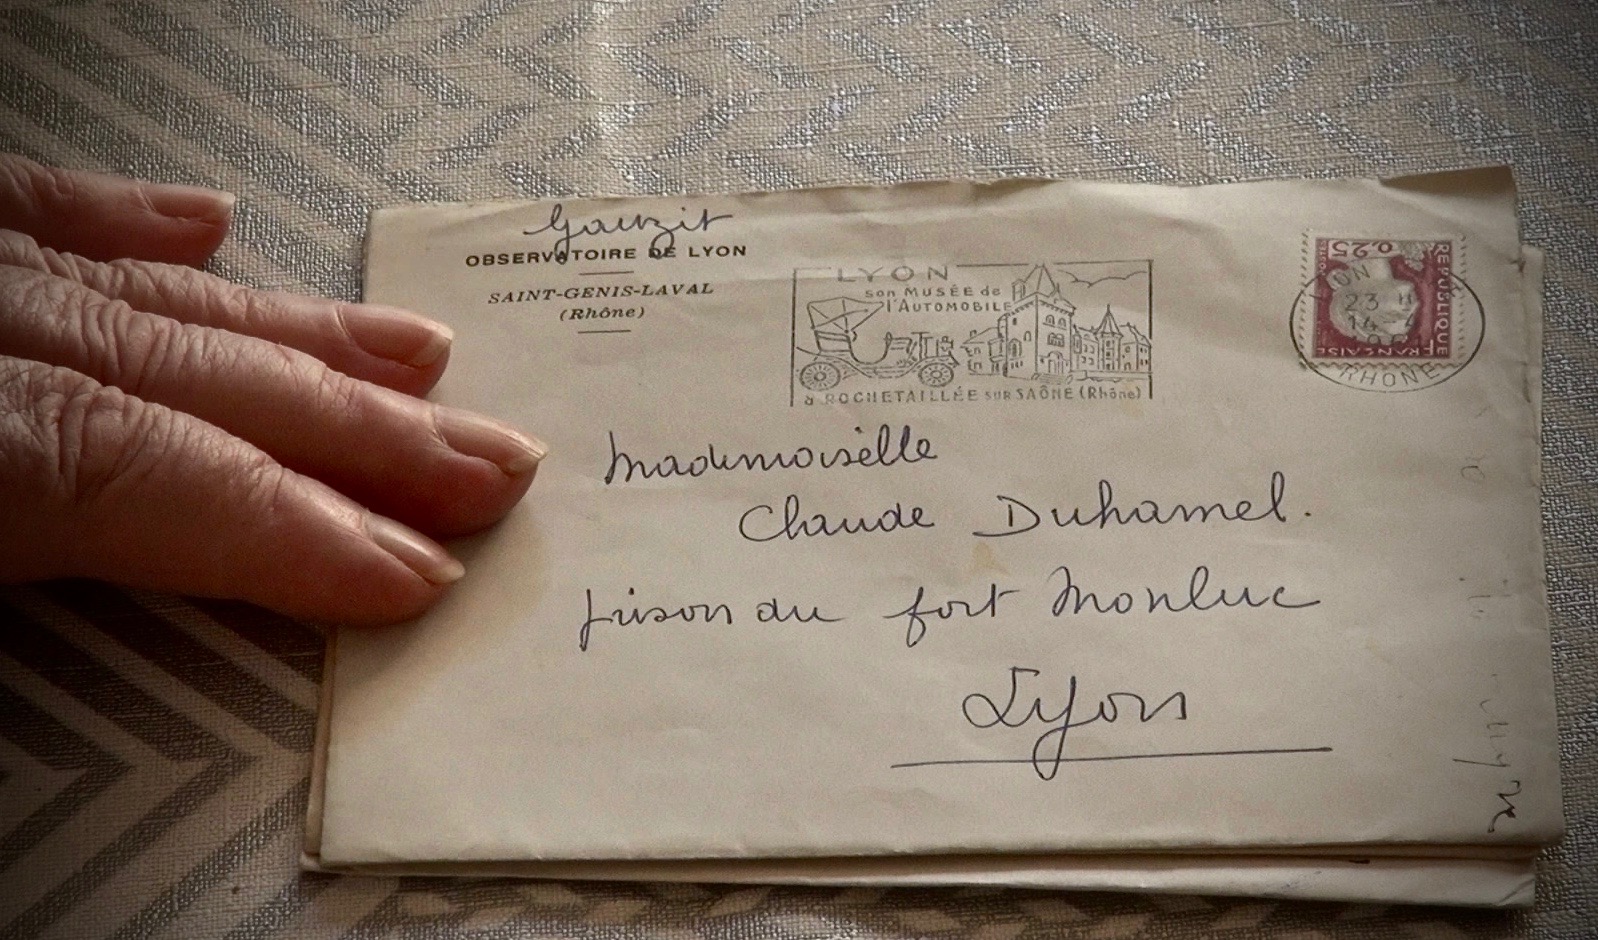 Gauzit
OBSERVATOIRE DE LYON
SAINT-GENIS-LAVAL
(Rhône)
LYON
son MUSÉE de
l'AUTOMOBILE
à ROCHETAILLÉE SUR SAÔNE (Rhône)
0,25
RÉPUBLIQUE
FRANÇAISE
LYON
23
14
RHONE
Mademoiselle
Claude Duhamel.
prison du fort Monluc
Lyon